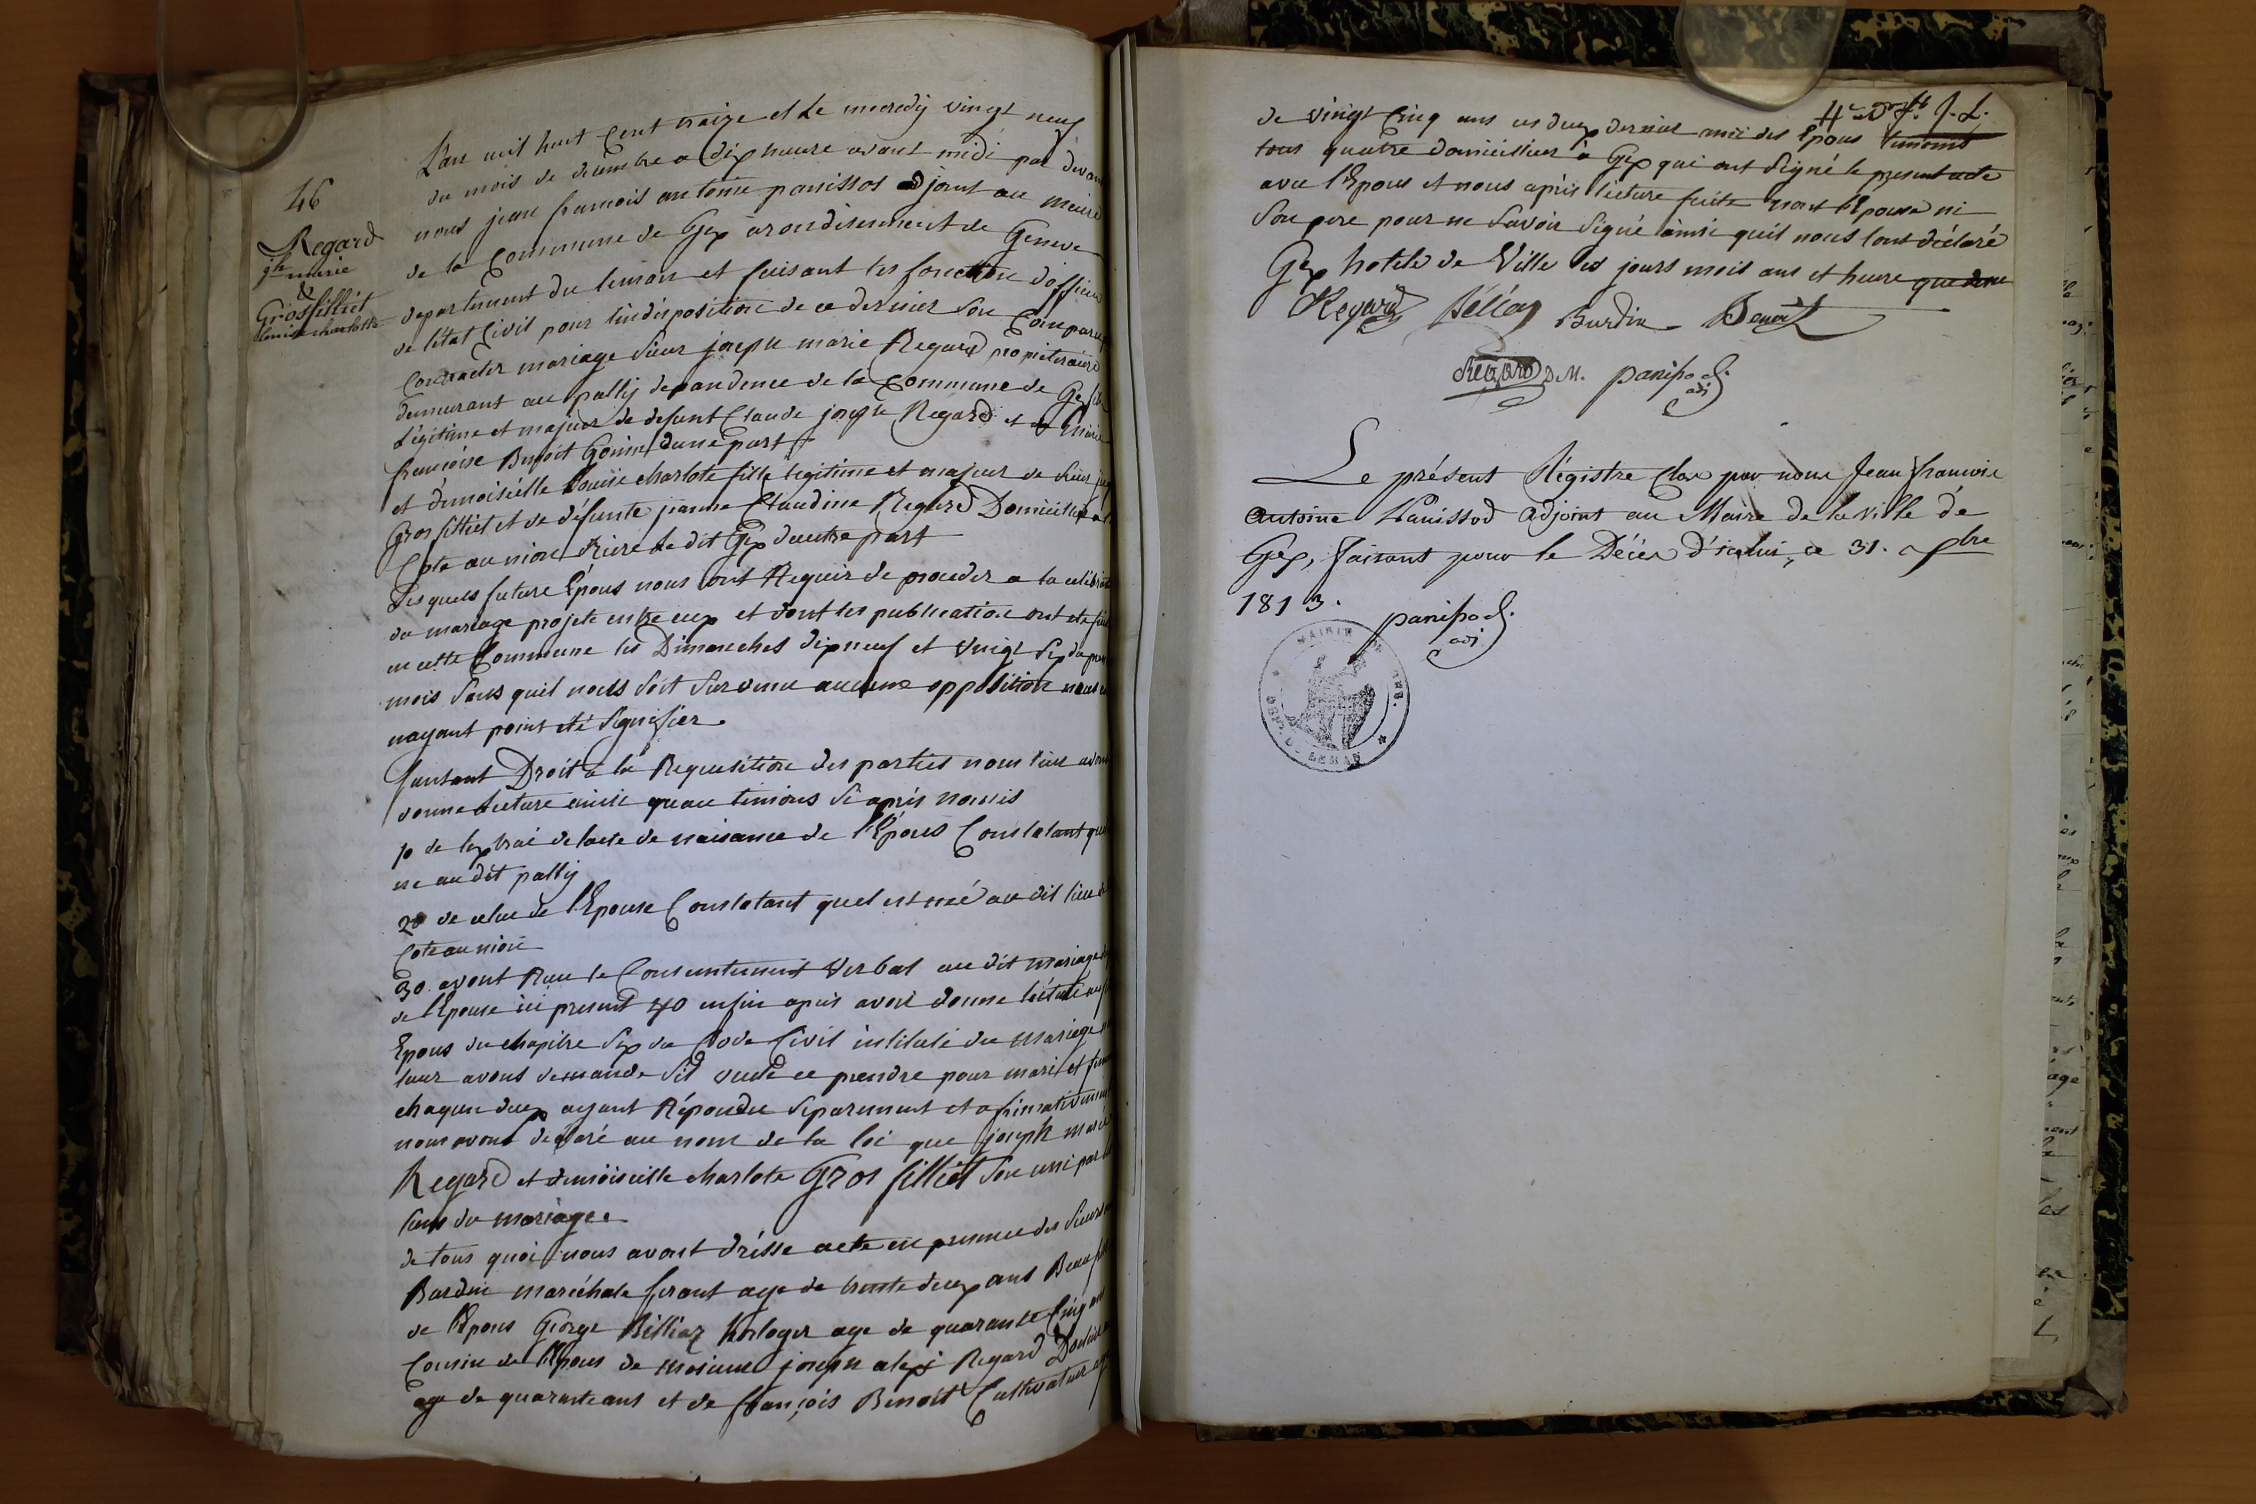 46
Regard
jh marie
&
Grosfilliet
louise charlotte
L'an mil huit Cent traize et Le mecredij vingt neuf
du mois de decembre a dix heure avant midi par devant
nous jean francois antoine panissod adjoint au maire
de la Commune de Gex arondisement de Geneve
departement du leman et faisant les fonction dofficier
de letat Civil pour lindisposition de ce dernier son Comparus
Contracter mariage sieur joseph marie Regard propietraire
demeurant au pally depandence de la Commune de Gex fils
Légitime et majeur de defunt Claude joseph Regard et de marie
francoise Benoit Gonin dune part
et démoisélle Louise charlote fille legitime et majeur de sieur
Gros filliet et de défunte jeanne Claudine Regard Domicillié a la
Cote au nion riere le dit Gex dautre part
Les quels future Epous nous ont Requir de proceder a la celebration
du mariage projete entre eux et dont les publication ont eté faite
en cette Commune les Dimanches dix neuf et vingt six du present
mois sans quil nous soit survenu aucune opposition nous en
nayant point eté signifier.
faisant Droit a la Requisition des parties nous leur avons
donne lecture ainsi quau timoins si après només
1o de lextrai de lacte de naisance de l'Epous Constatant quil
ne au dit pally
2o de celui de l'Epouse Constatant quel est neé au dit lieu de
Cote au nion
3o avont Recu le Consentement verbal au dit mariage
de l'Epouse ici present 4o enfin apres avoir donne lecture au
Epous du chapitre six du Code Civil intitulé du mariage
leur avons demande sil veule ce prendre pour mari et femme
chaqun deux ayant Répondu séparement et afirmativement
nous avons declaré au nom de la loi que joseph marie
Regard et demoiselle charlote Gros filliet son uni par le
liens du mariage.
de tous quoi nous avont drésse acte en presence des sieurs
Burdin maréchale ferant age de trente deux ans Beaufrere
de l'Epous George Billiaz horloger age de quarante Cinq ans
Cousin de l'Epous de mosieur joseph alexi Regard
age de quarante ans et de françois Benoit Cultivateur
de vingt Cinq ans ces deux dernier amis des Epous timoins
tous quatre domicillier à Gex qui ont signé le present acte
avec l'Epous et nous après lecture faite non l'Epouse ni
son pere pour ne savoir signé ainsi quil nous lont déclaré
Gex hotele de Ville les jours mois ans et heure que dessu
Regard Billiaz Burdin Benoit
Regard D.M. panissod.
adj
Le présent Régistre Clos par nous Jean francois
antoine Panissod adjoint au Maire de la ville de
Gex, faisant pour le Décès d'icelui, ce 31. Xbre
1813.
panissod.
adj
MAIRIE DE GEX.
DEP. DU LEMAN